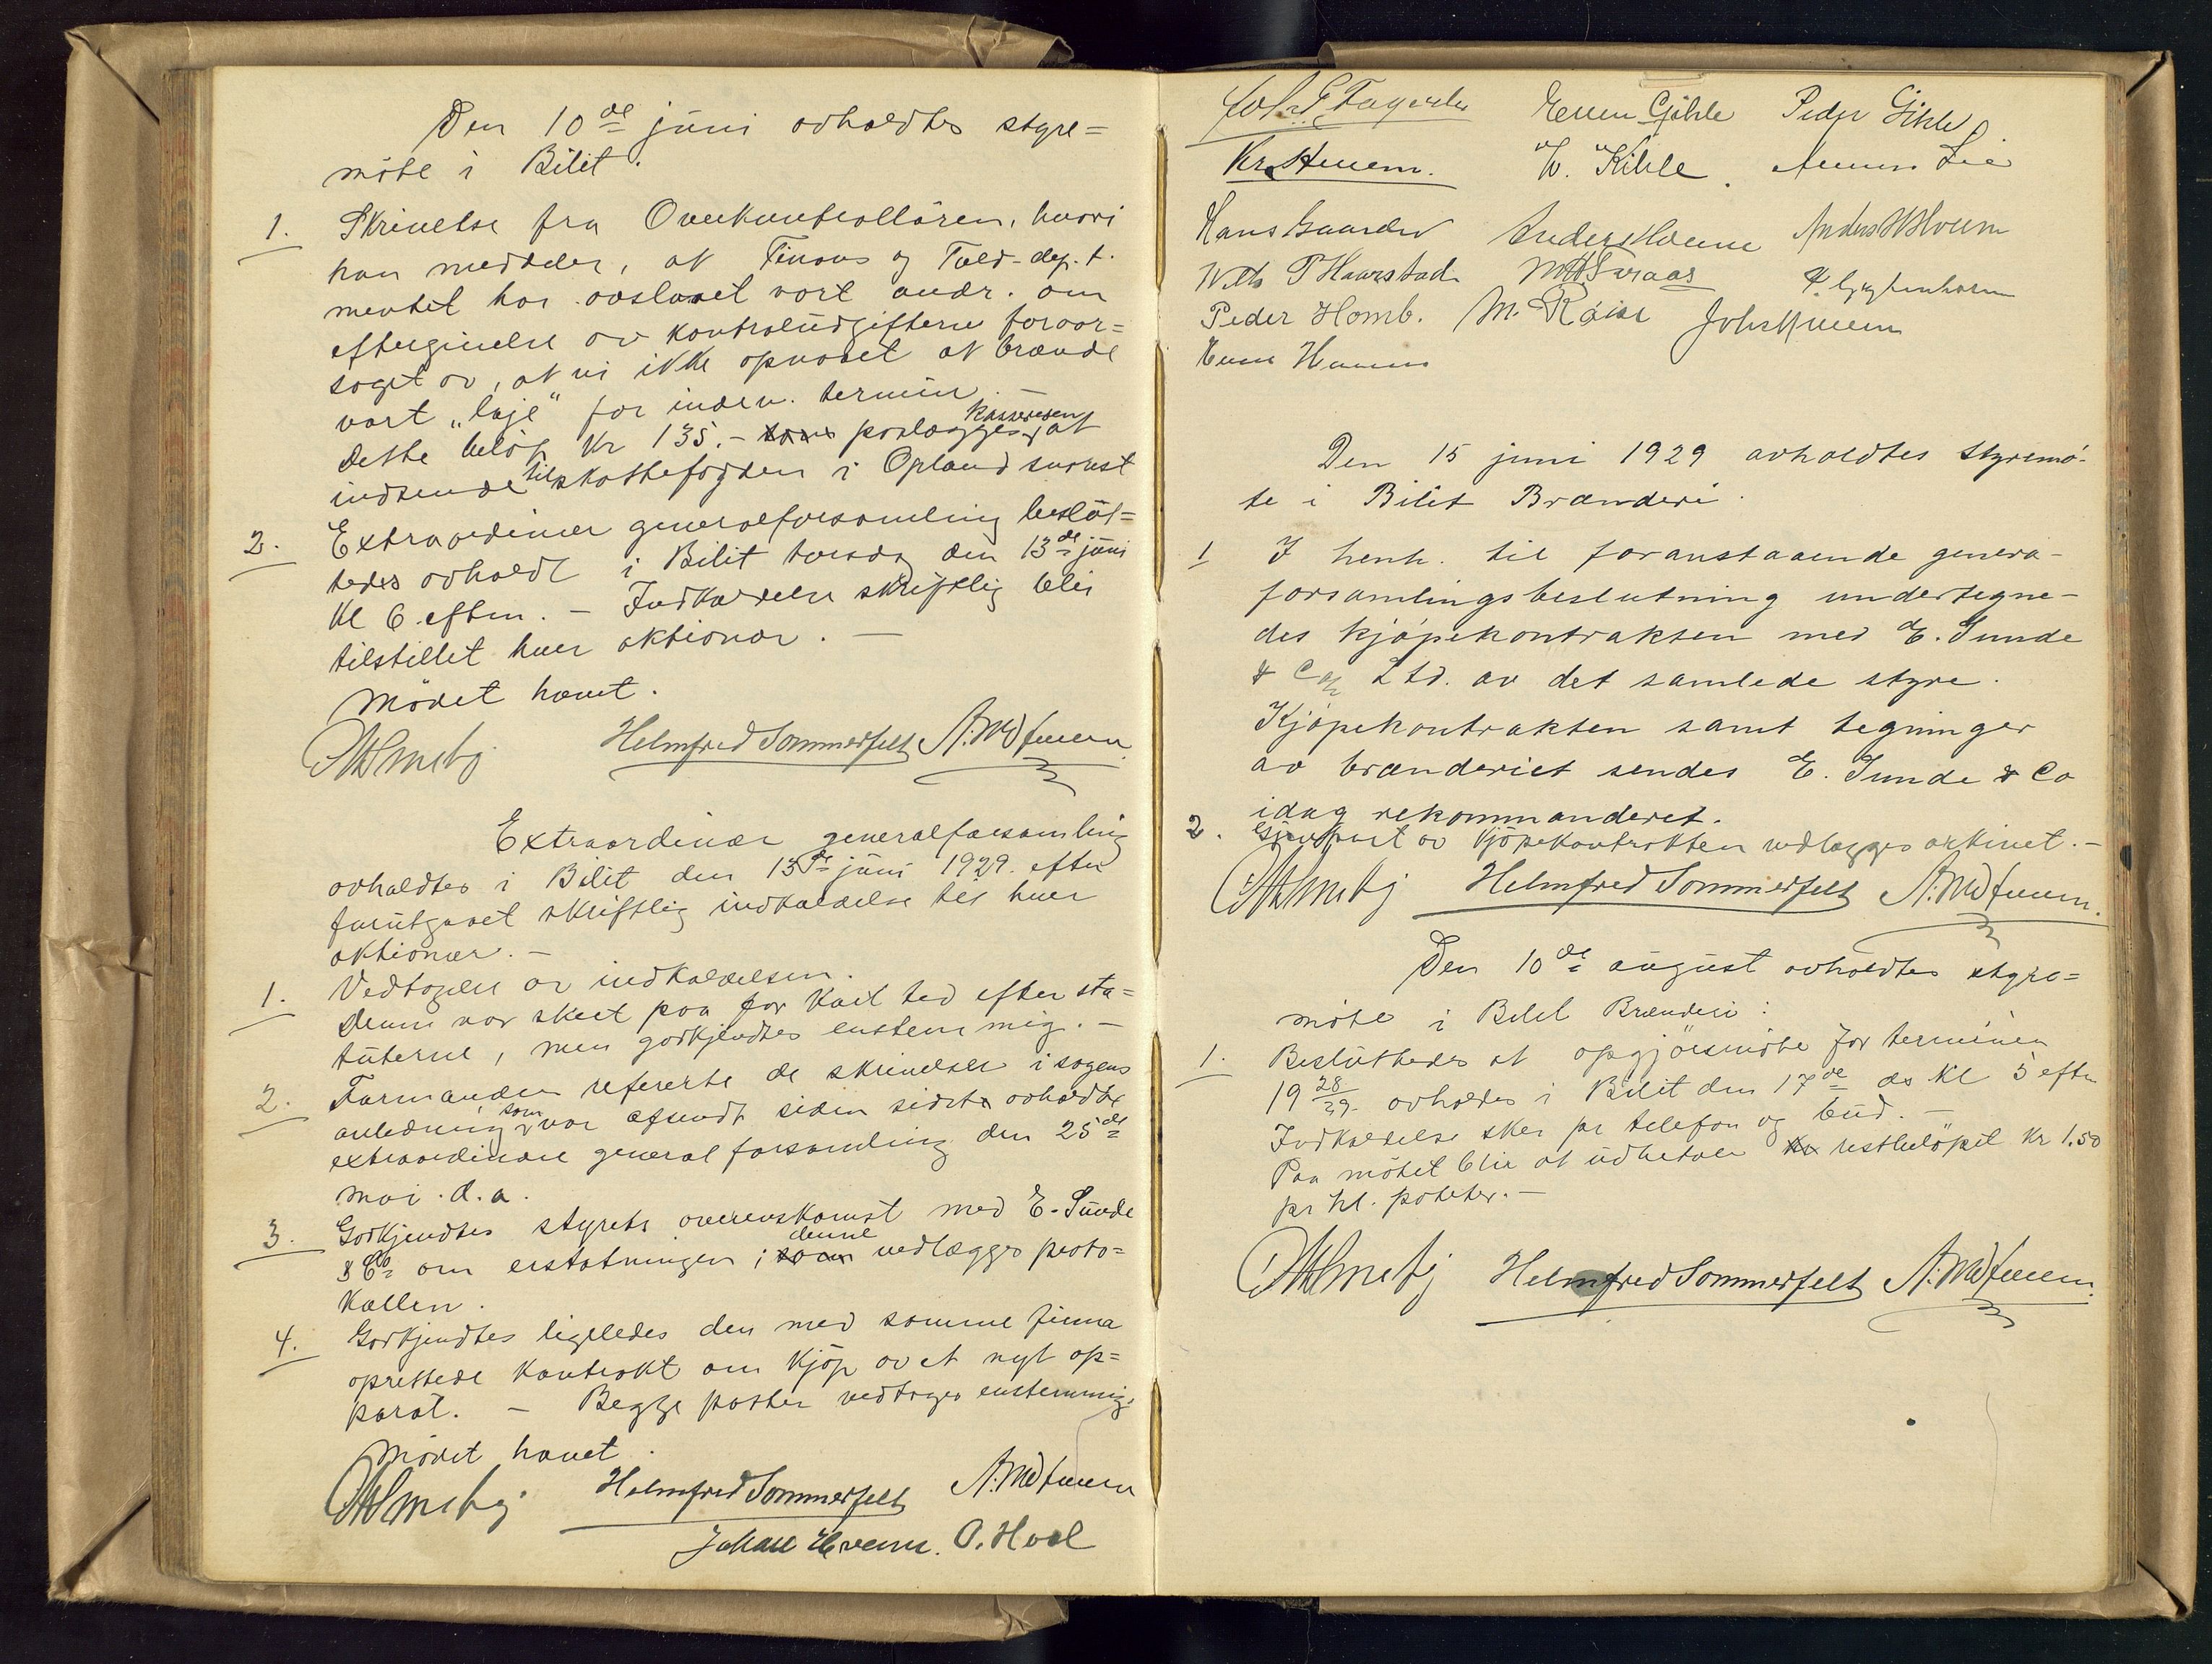 Den 10de juni avholdtes styre=
möte i Bilit.
1. Skrivelse fra Overkontrollören, hvori
han meddeler, at Finans og Told-dep.t.
mentet har avslaaet vort andr. om
eftergivelse av kontroludgifterne foraar=
saget av, at vi ikke opnaaet at brænde
vort "leje" for indev. termin. –
Dette belöp kr 135.- paalægges kassereren at
indsende til skattefogden i Opland snarest
2. Extraordinær generalforsamling beslöt=
tedes avholdt i Bilit torsdag den 13de juni
kl 6 eftm. – Indkaldelse skriftlig blir
tilstillet hver aktionær. –
Mödet hævet.
Helmfred Sommerfelt
Extraordinær generalforsamling
avholdtes i Bilit den 13de juni 1929. efter
forutgaaet skriftlig indkaldelse til hver
aktionær. –
1. Vedtagelse av indkaldelsen.
Denne var skeet paa for kort tid efter sta=
tuterne, men godkjendtes enstemmig. –
2. Formanden refererte de skrivelser i sagens
anledning som var afsendt siden sidste avholdte
extraordinære generalforsamling den 25de
mai. d.a.
3. Godkjendtes styrets overenskomst med E. Sunde
& Co om erstatningen; denne vedlægges proto=
kollen.
4. Godkjendtes ligeledes den med samme firma
oprettede kontrakt om kjöp av et nyt ap=
parat. – Begge poster vedtages enstemmig.
Mödet hævet.
Helmfred Sommerfelt
Johan Hveem. O. Hoel
Even Gihle Peder Gihle
Kr. Hveem. W. Kihle. Lie
Hans Gaarder Anders Hveem Anders Hveem
P Haarstad
Peder Homb. M. Röise Joh Hveem
Den 15 juni 1929 avholdtes styremö-
te i Bilit Brænderi.
1 I henh. til foranstaaende genera-
forsamlingsbeslutning undertegne-
des kjöpekontrakten med E. Sunde
& Co Ltd. av det samlede styre.
Kjöpekontrakten samt tegninger
av brænderiet sendes E. Sunde & Co
idag rekommanderet.
2. Gjenpart av kjöpekontrakten vedlægges arkivet. –
Helmfred Sommerfelt
Den 10de august avholdtes styre=
möte i Bilit Brænderi:
1. Besluttedes at opgjörsmöte for terminen
19 28/29 avholdes i Bilit den 17de ds kl 5 eftm
Indkaldelse sker pr telefon og bud. –
Paa mötet blir at udbetale restbelöpet kr 1.50
pr hl. poteter. –
Helmfred Sommerfelt